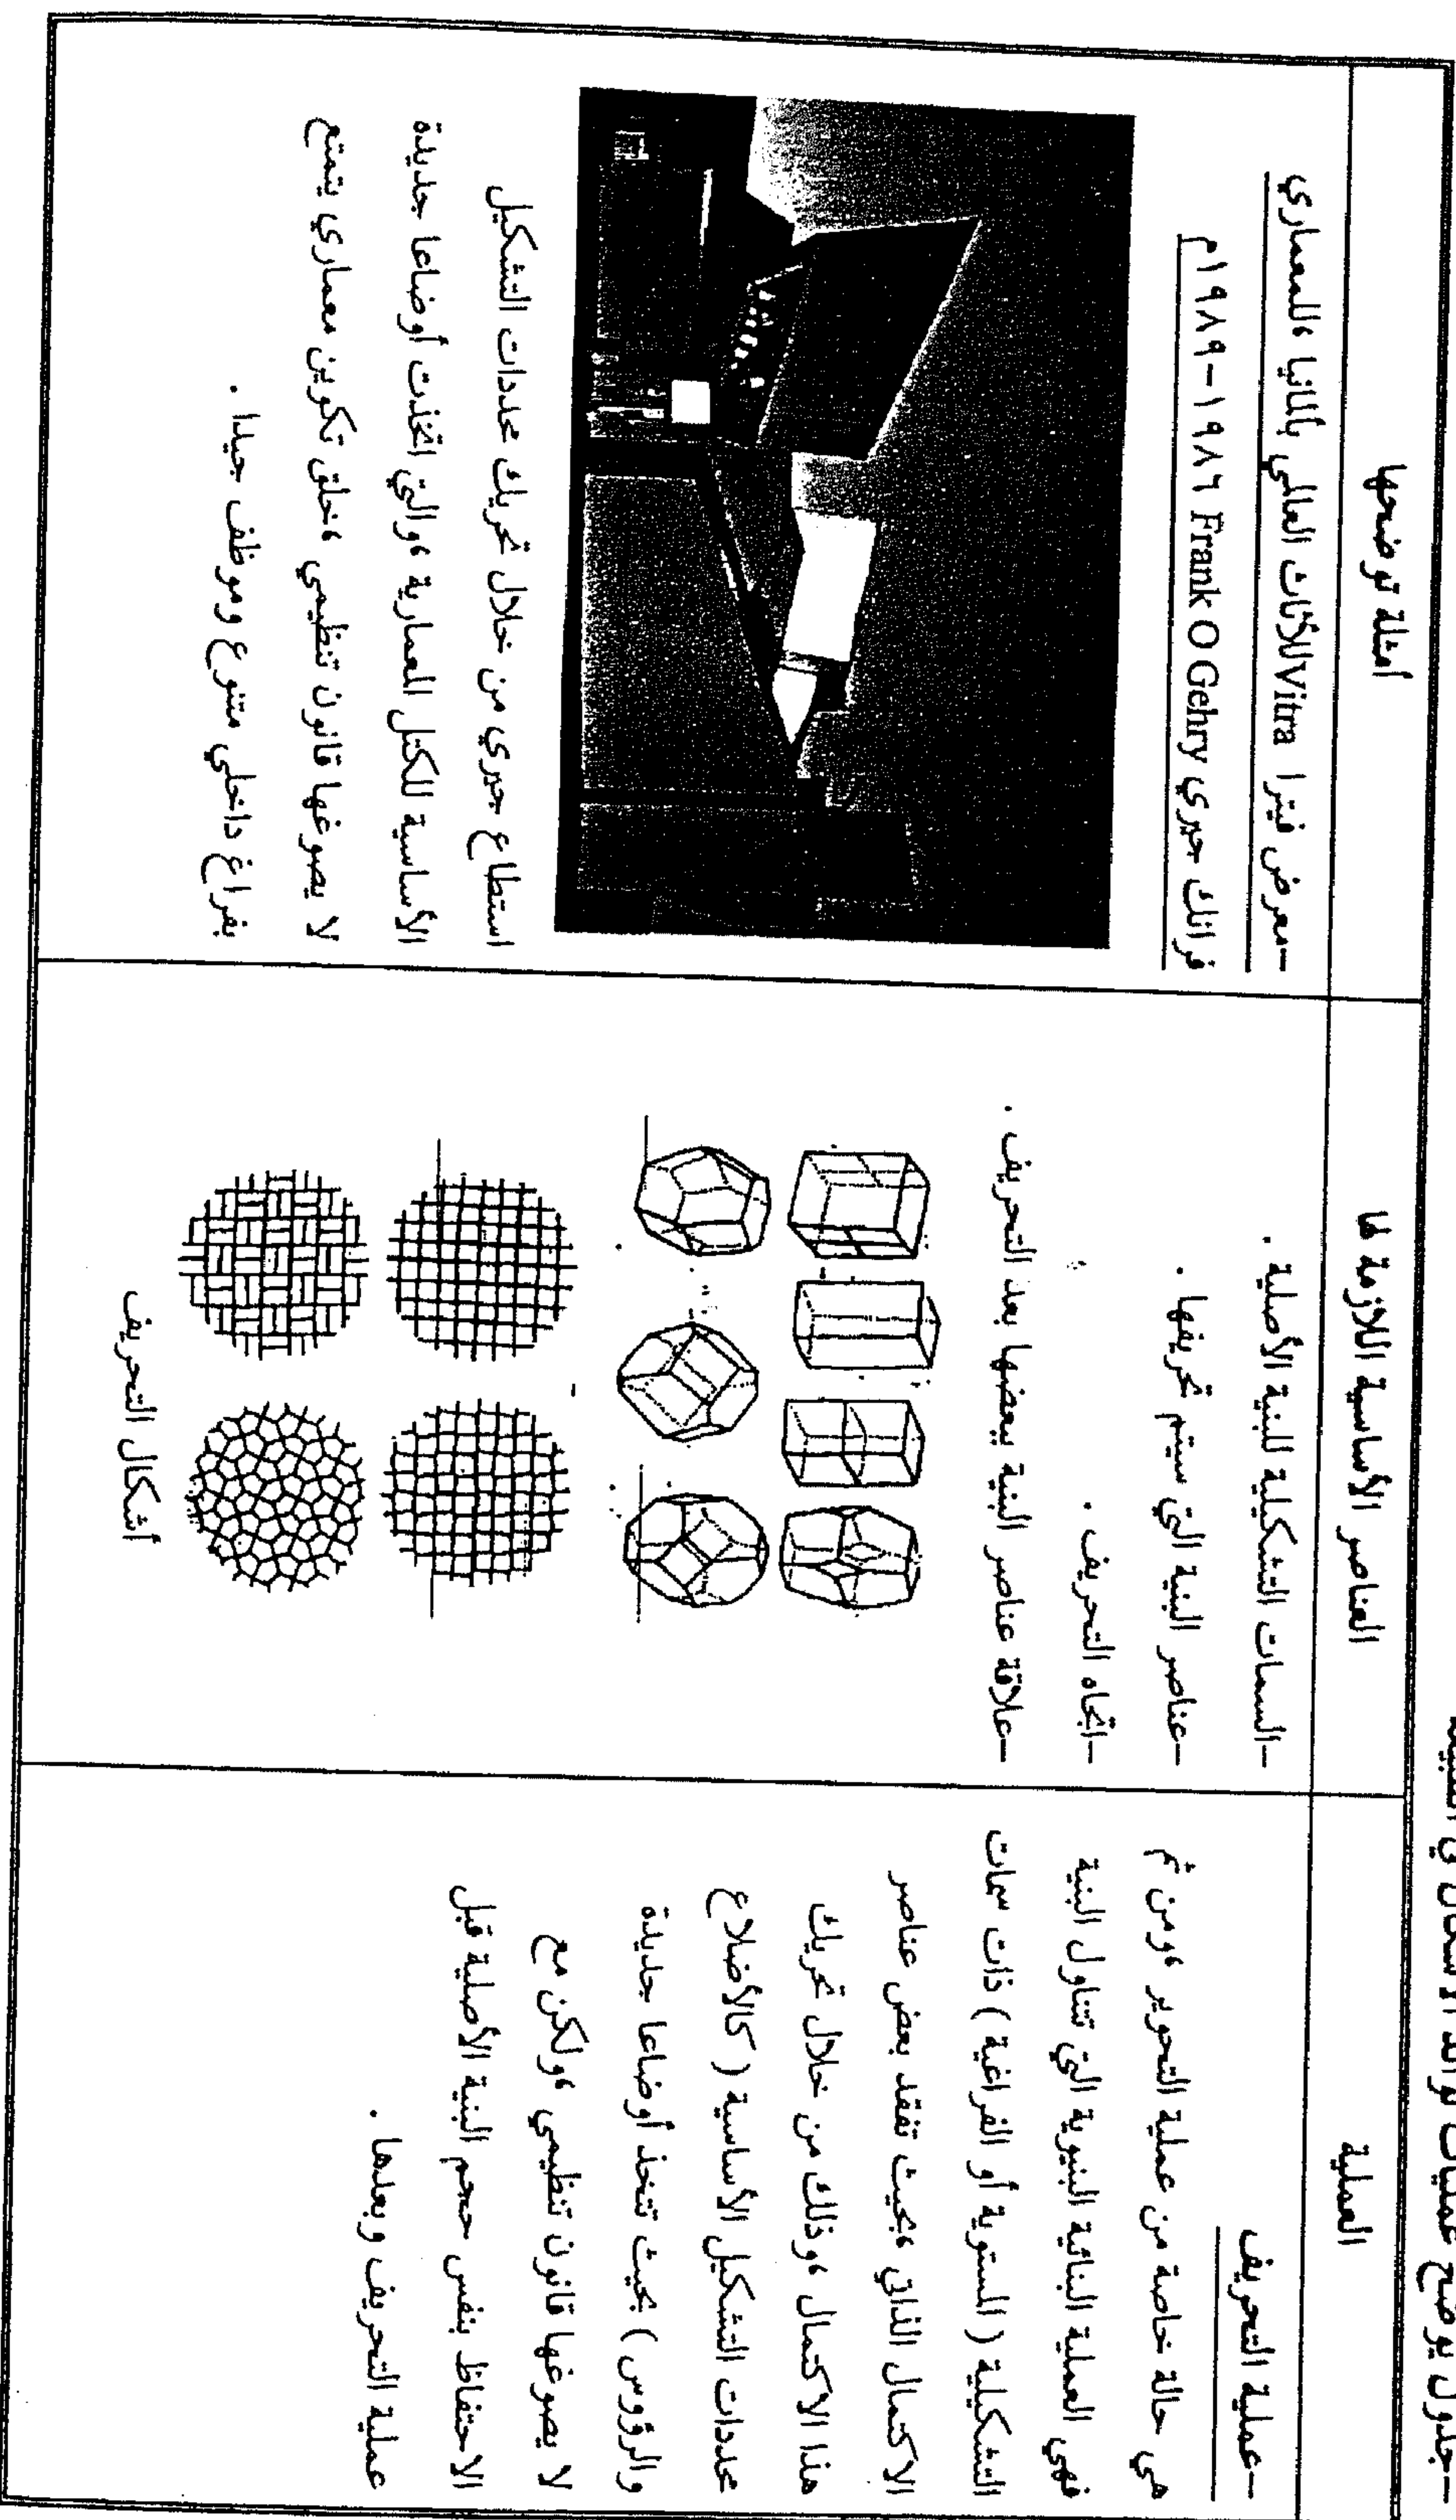 -جدول يوضح عمليات توالد الأشكال في
العملية
العناصر الأساسية اللازمة لها
أمثلة توضحها
-عملية التحريف
هي حالة خاصة من عملية التحوير ،ومن ثم
فهي العملية البنائية البنيوية التي تتناول البنية
التشكيلية ( المستوية أو الفراغية ) ذات سمات
الاكتمال الذاتي ،بحيث تفقد بعض عناصر
هذا الاكتمال ،وذلك من خلال تحريك
محددات التشكيل الأساسية ( كالأضلاع
والرؤوس ) بحيث تتخذ أوضاعا جديدة
لا يصوغها قانون تنظيمي ،ولكن مع
الاحتفاظ بنفس حجم البنية الأصلية قبل
عملية التحريف وبعدها .
-السمات التشكيلية للبنية الأصلية .
-عناصر البنية التي سيتم تحريفها .
-اتجاه التحريف .
-علاقة عناصر البنية ببعضها بعد التحريف .
أشكال التحريف
-معرض فيترا Vitra للأثاث العالمي بألمانيا ،للمعماري
فرانك جيري Frank O Gehry ١٩٨٦-١٩٨٩م
استطاع جيري من خلال تحريك محددات التشكيل
الأساسية للكتل المعمارية ،والتي اتخذت أوضاعا جديدة
لا يصوغها قانون تنظيمي ،خلق تكوين معماري يتمتع
بفراغ داخلي متنوع وموظف جيدا .